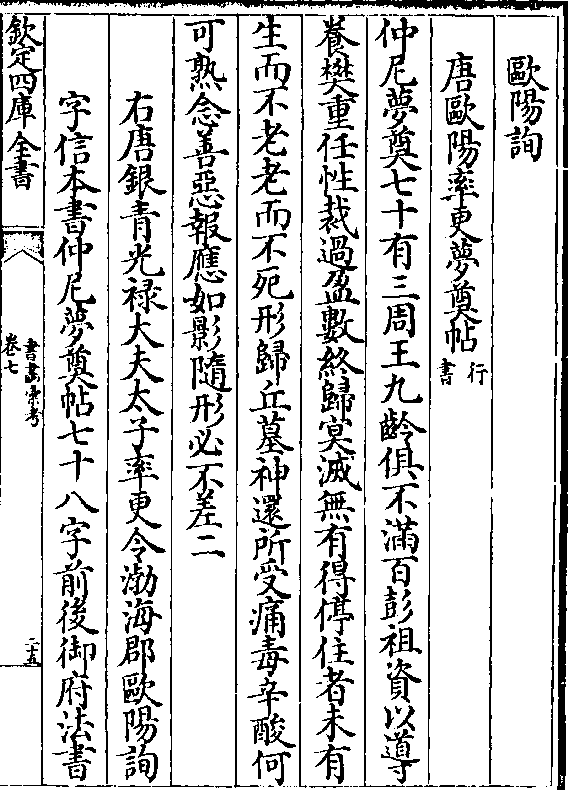 歐陽詢
唐歐陽率更夢奠帖行書
仲尼夢奠七十有三周王九齡俱不滿百彭祖資以導
養樊重任性裁過盈數終歸冥滅無有得停住者未有
生而不老老而不死形歸丘墓神還所受痛毒辛酸何
可熟念善惡報應如影隨形必不差二
右唐銀青光禄大夫太子率更令渤海郡歐陽詢
字信本書仲尼夢奠帖七十八字前後御府法書
欽定四庫全書
書畵彚考
卷七
二十五